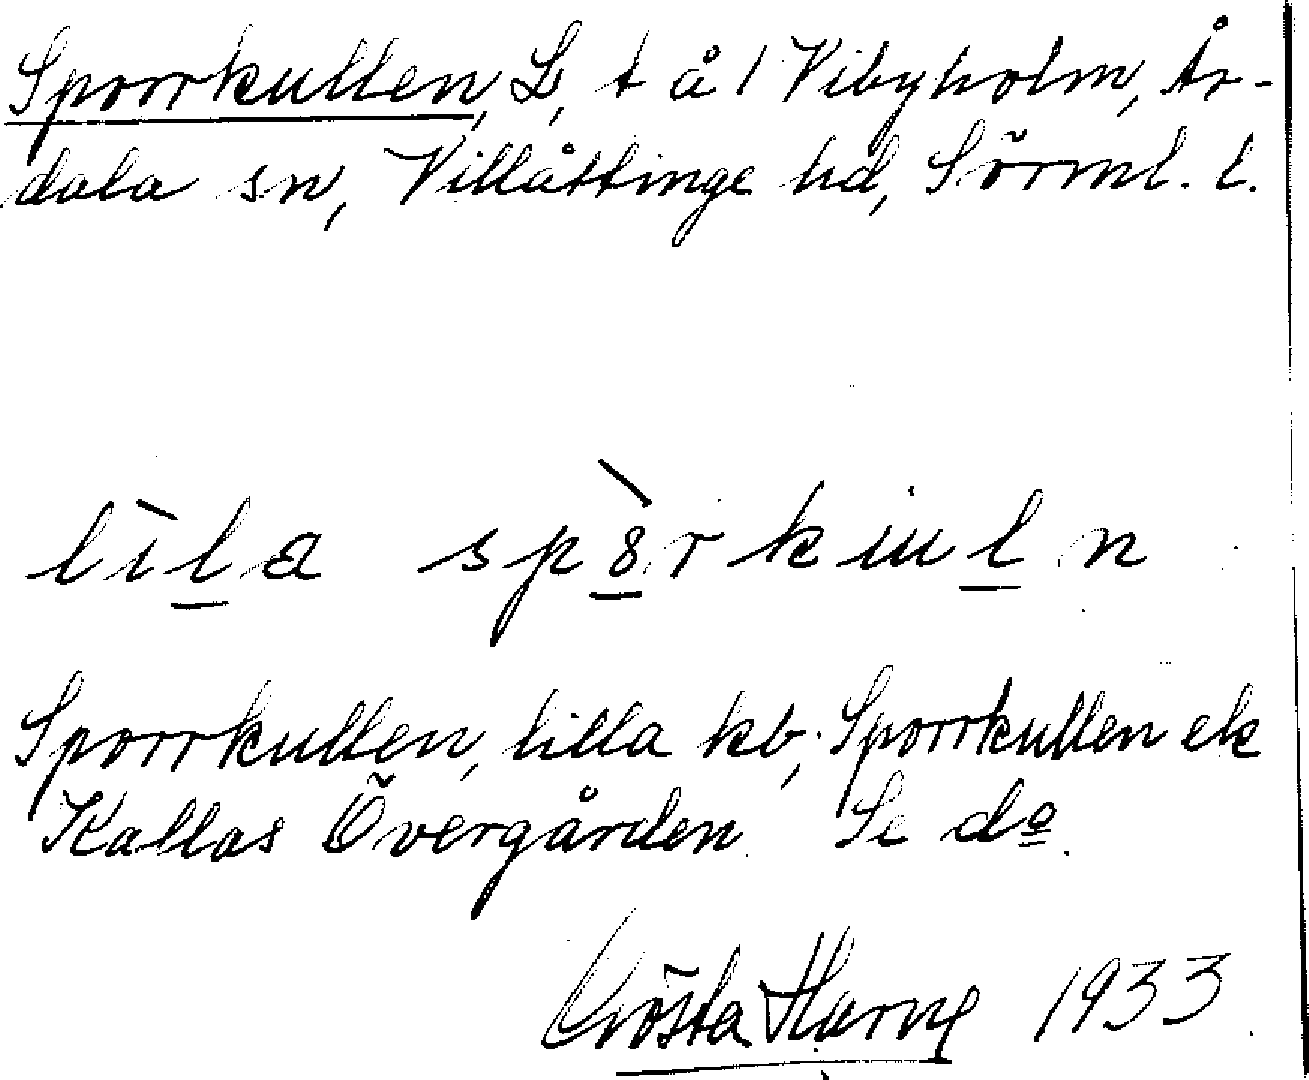 Sporrkullen, L, t å 1 Vibyholm, År-
dala sn, Villåttinge hd, Sörml. l.
lìla spòrkuln
Sporrkullen, lilla kb; Sporrkullen ek
Kallas Övergården. Se do.
Gösta Harne 1933